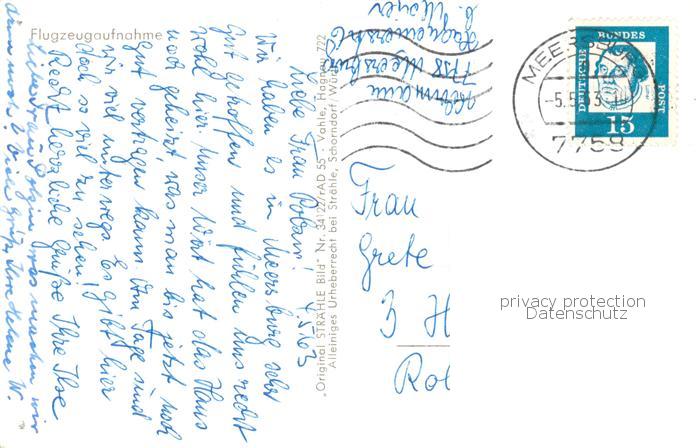 Flugzeugaufnahme
4.5.63
Liebe Frau
Wir haben es in Meersburg sehr
gut getroffen und fühlen uns recht
wohl hier, unser Wirt hat das Haus
noch geheizt was man bis jetzt noch
gut vertragen kann. Am Tage sind
wir viel unterwegs. Es gibt hier
doch so viel zu sehen!
Recht herzliche Grüße Ihre Ilse
was machen wir
Ihre
"Original STRÄHLE Bild" Nr. 34122/rAD 55 · Vahle, Hagnau 722
Alleiniges Urheberrecht bei Strähle, Schorndorf/Württ
7758 Meersburg
DEUTSCHE BUNDESPOST
15
MEERSBU
-5.5.63-1
7758
Frau
Grete
3 H
Rot
privacy protection
Datenschutz